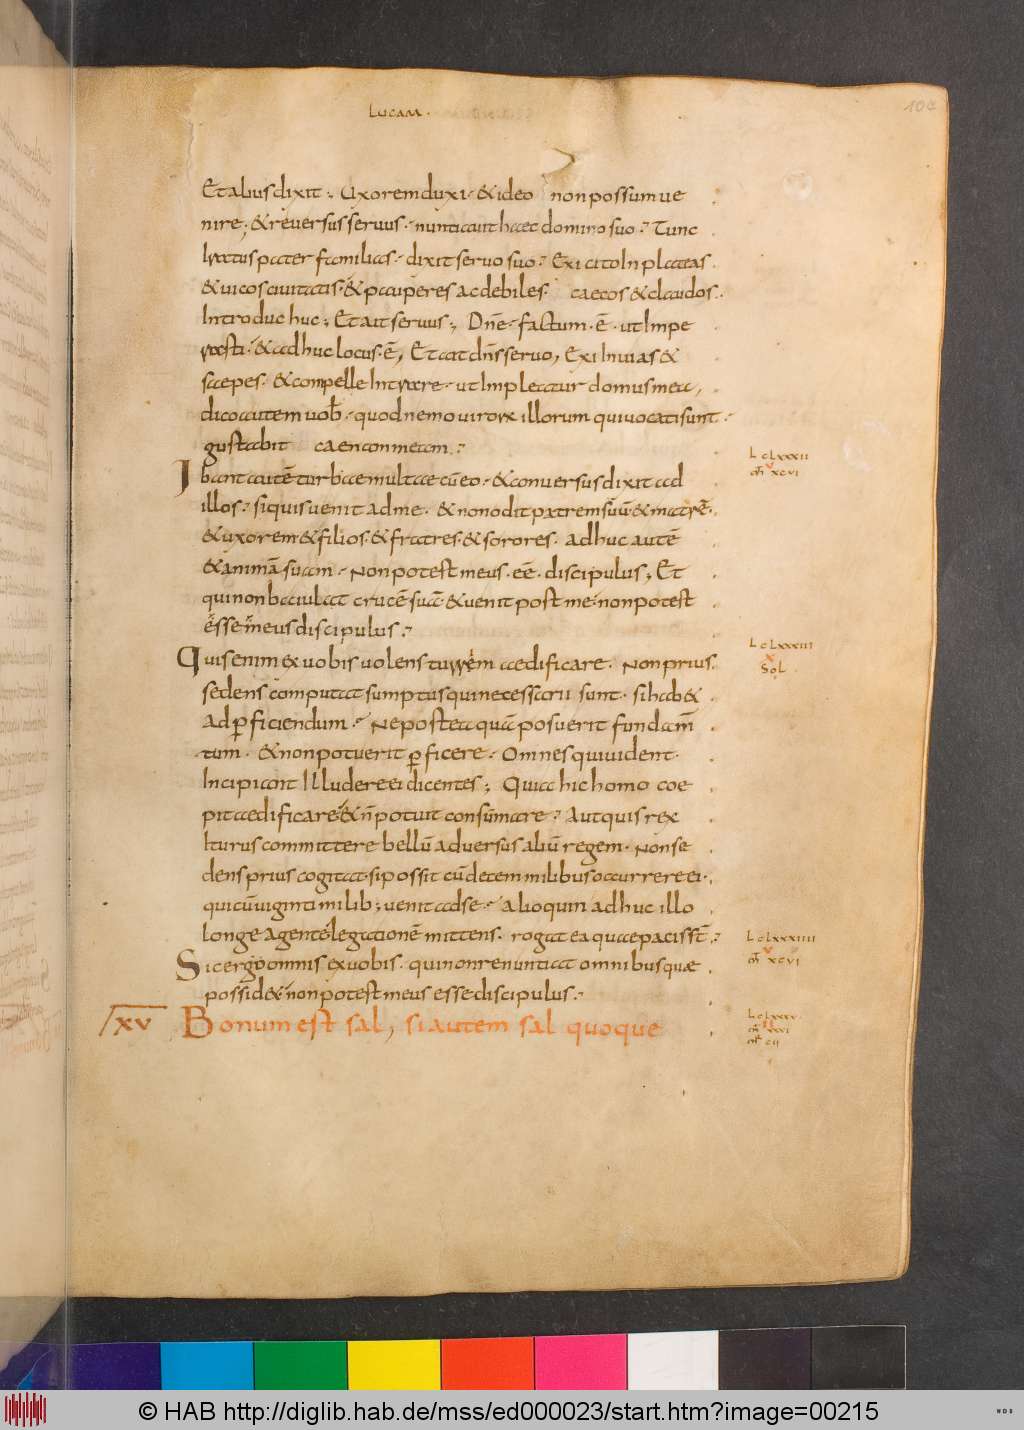 LUCAM.
104
Et alius dixit; Uxorem duxi. & ideo non possum ue
nire; & reuersus seruus. nuntiauit haec domino suo. Tunc
iratus pater familias. dixit seruo suo. Exi cito In plateas
& uicos ciuitatis. & pauperes ac debiles. caecos & claudos.
Introduc huc; Et ait seruus; Dn̄e. factum. ē. ut Impe
rasti. & adhuc locus. ē, Et ait dn̄s seruo, Exi In uias &
saepes. & compelle Intrare. ut Impleatur domus mea,
dico autem uob̄. quod nemo uirorum illorum qui uocati sunt.
gustabit caenam meam.
Ibant autē turbae multae cū eo. & conuersus dixit ad
illos. si quis uenit ad me. & non odit patrem suū & matrē.
& uxorem & filios. & fratres. & sorores. adhuc autē
& animā suam. Non potest meus. eē. discipulus; Et
qui non baiulat crucē suā. & uenit post me. non potest
esse meus discipulus.
Quis enim ex uobis uolens turrem aedificare. Non prius
sedens computat sumptus qui necessarii sunt. si hab&
ad p̄ficiendum. Ne postea quā posuerit fundam̄
tum. & non potuerit p̄ficere. Omnes qui uident.
Incipiant Illudere ei dicentes; Quia hic homo coe
pit aedificare & n̄ potuit consūmare. Aut quis rex
Iturus committere bellū aduersus aliū regem. Non se
dens prius cogitat. si possit cū decem milibus occurrere ei.
qui cū uiginti milib; uenit ad se. alioquin adhuc illo
longe agente legationē mittens. rogat ea quae pacis st̄.
Sic ergo omnis ex uobis. qui non renuntiat omnibus quae
possid& non potest meus esse discipulus.
XV Bonum est sal, si autem sal quoque
L clxxxii
m̄ xcvi
L clxxxiii
x
Sol
L clxxxiiii
v
m̄ xcvi
L clxxxv
ii
m̄ xxxi
m̄ cii
© HAB http://diglib.hab.de/mss/ed000023/start.htm?image=00215
WDB